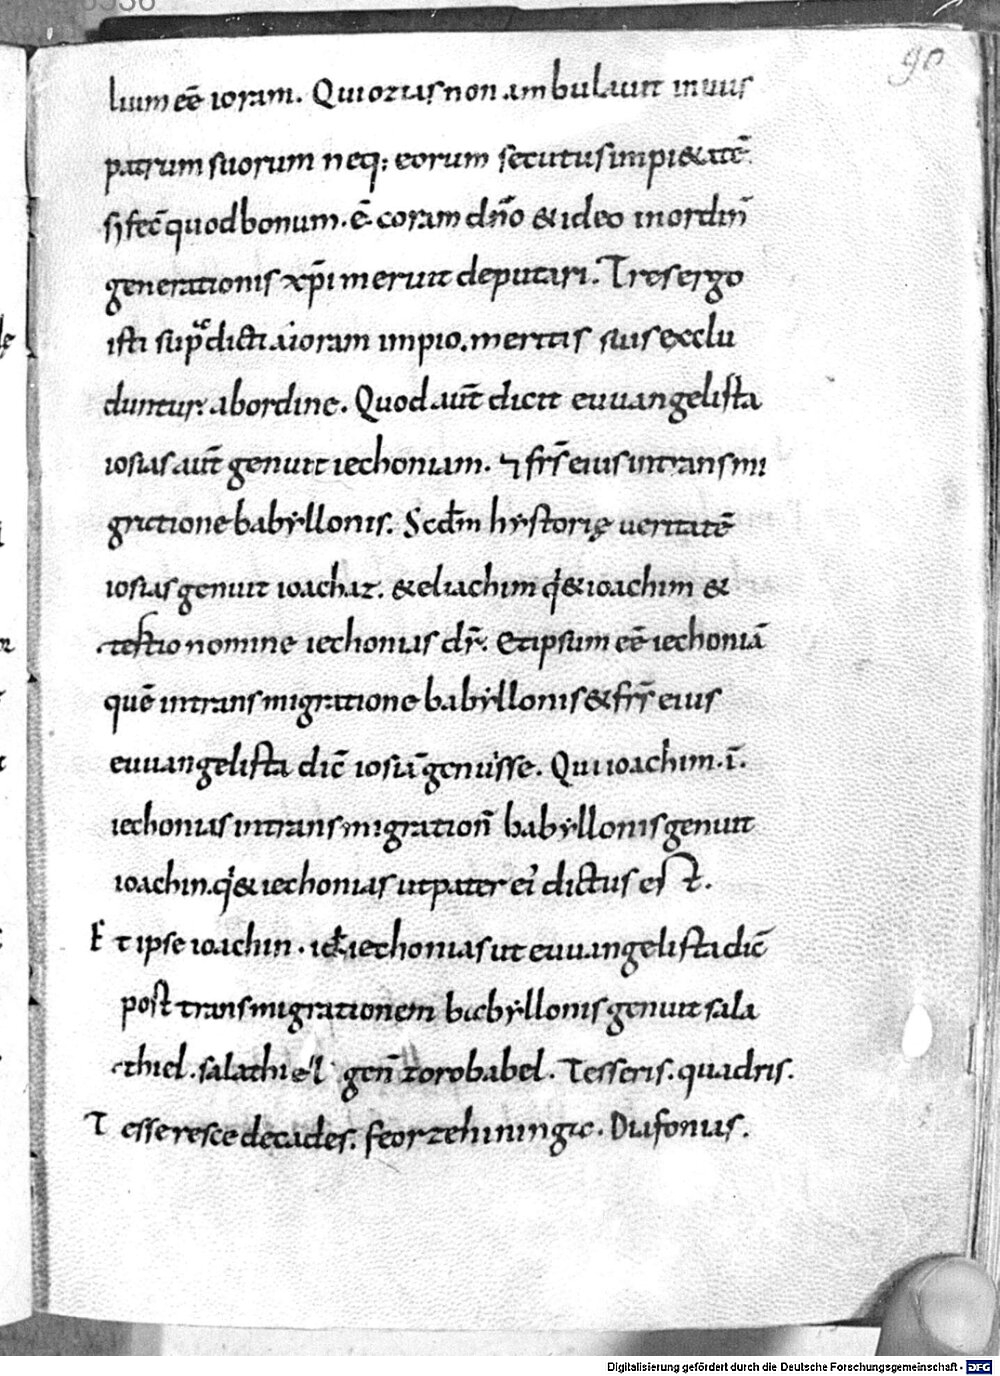 90
lium eē ioram. Qui ozias non ambulauit in uiis
patrum suorum neq; eorum secutus impi&atē.
s; fec̄ quod bonum. ē. coram dn̄o & ideo in ordin̄
generationis xp̄i meruit deputari. Tres ergo
isti sup̄dicti a ioram impio. meritis suis exclu
duntur. ab ordine. Quod aut̄ dicit euuangelista
iosias aut̄ genuit iechoniam. ⁊ frs̄ eius in transmi
gratione babẏllonis. Scd̄m hẏstorię ueritatē
iosias genuit ioachaz. & eliachim q̇ & ioachim &
tertio nomine iechonias dr̄. Et ipsum eē iechoniā
quē in transmigratione babẏllonis & frs̄ eius
euuangelista dic̄ iosiā genuisse. Qui ioachim. ī.
iechonias in transmigration̄ babẏllonis genuit
ioachin. q̇ & iechonias ut pater ei' dictus est.
Et ipse ioachin. iechonias ut euuangelista dic̄
post transmigrationem babẏllonis genuit sala
thiel. salathiel gen̄ zorobabel. Tesseris. quadris.
Tesseresce decades. feorzehiningic. Diafonias.
Digitalisierung gefördert durch die Deutsche Forschungsgemeinschaft - DFG